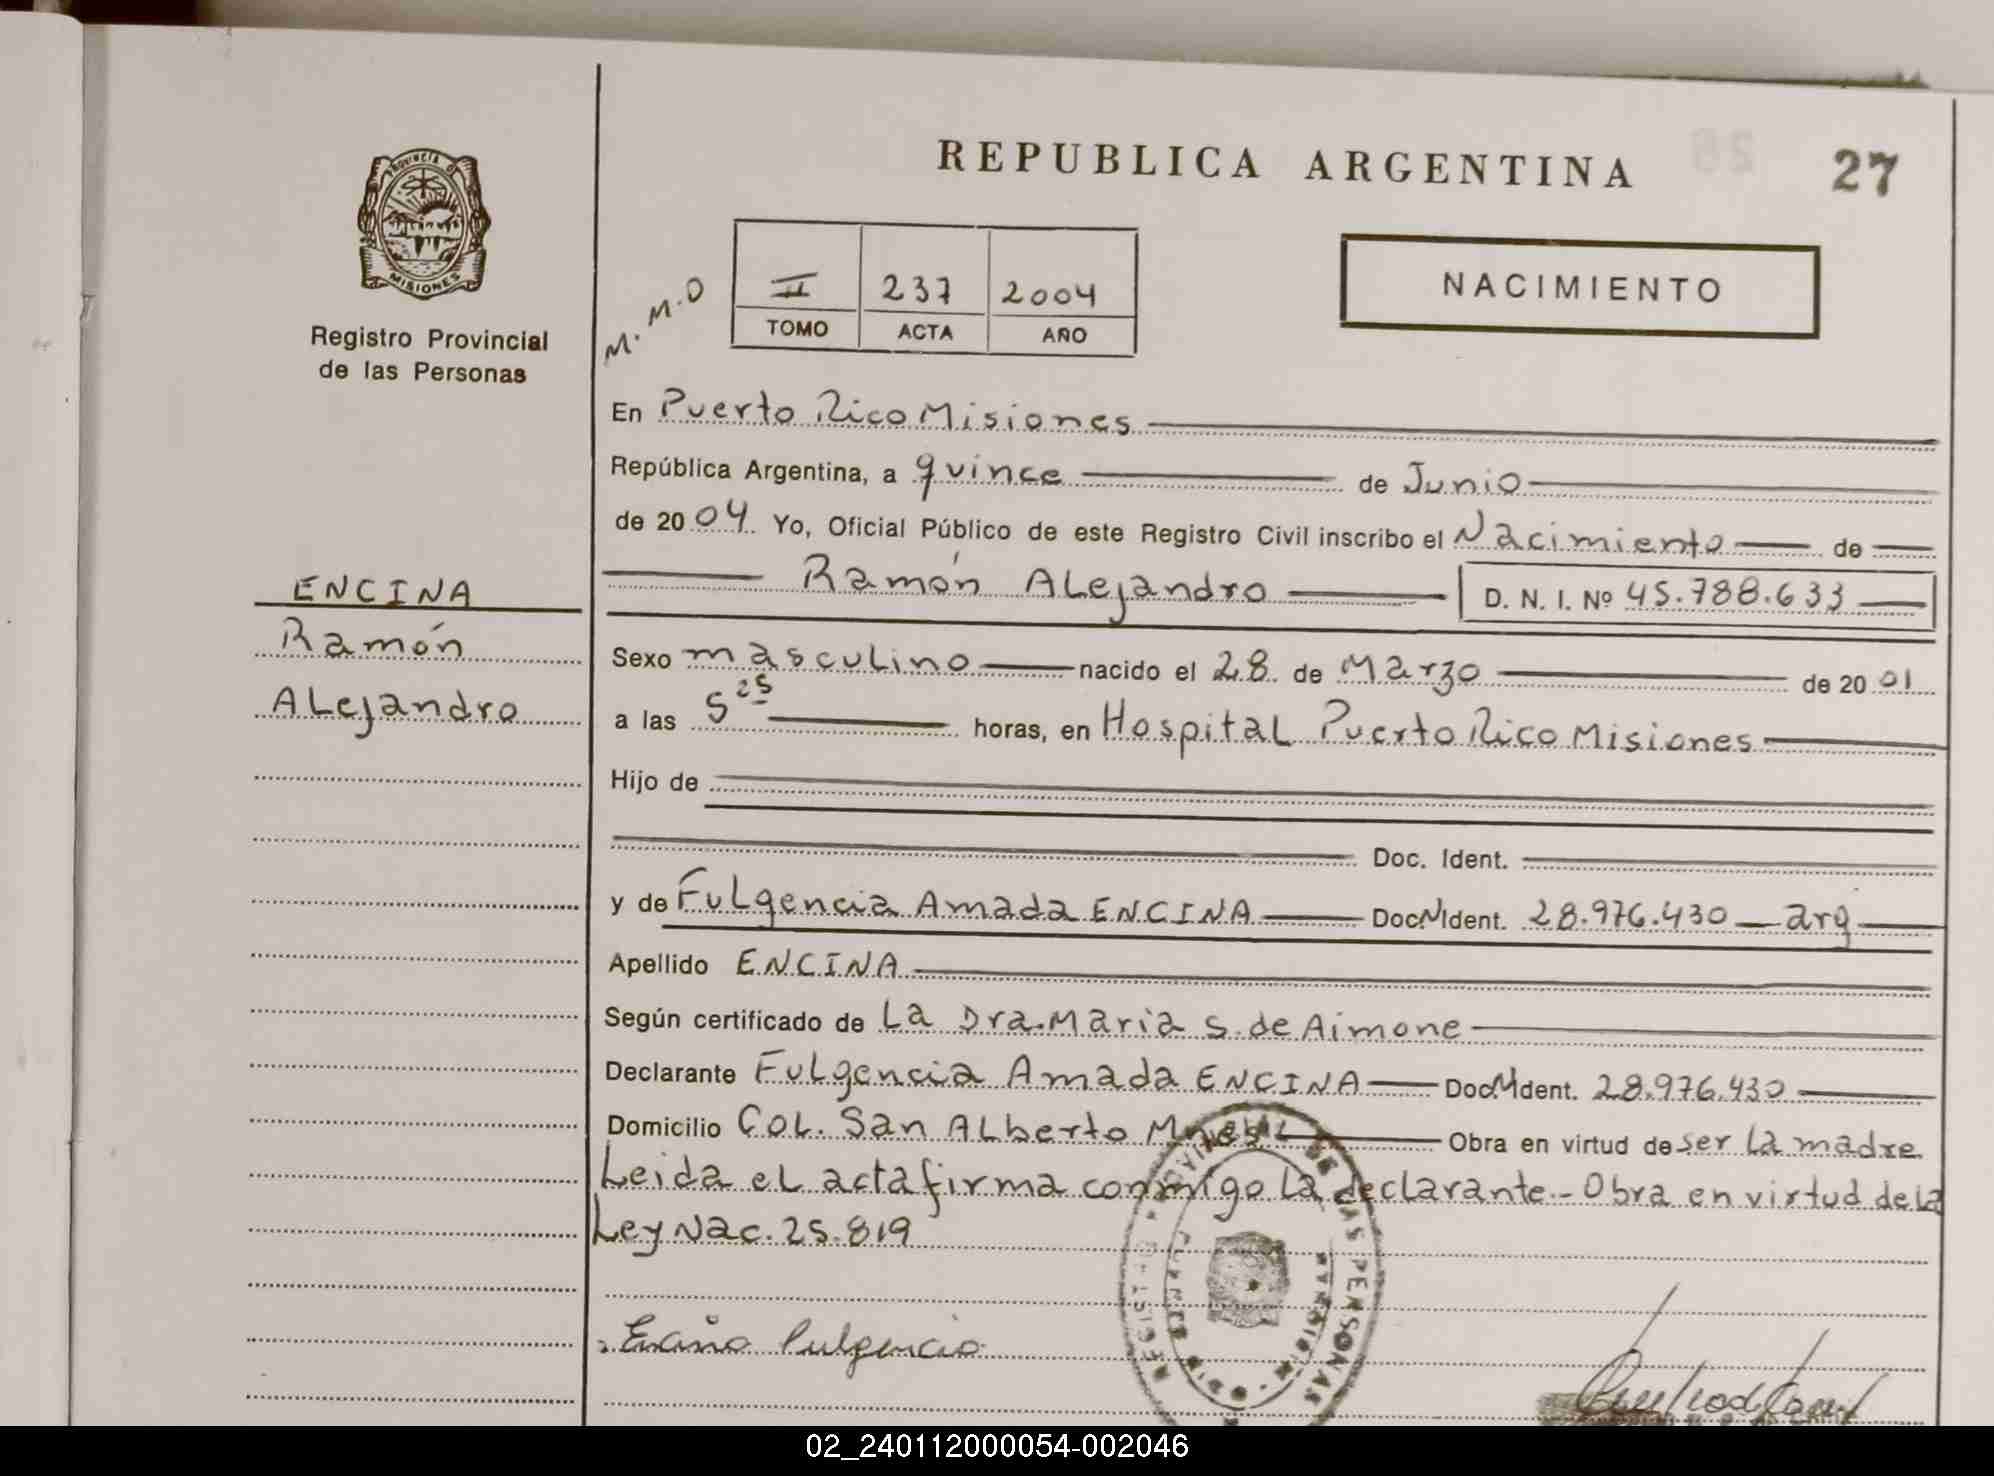 REPUBLICA ARGENTINA
27
PROVINCIA DE
MISIONES
Registro Provincial
de las Personas
M. M. O
II 237 2004
TOMO ACTA AÑO
NACIMIENTO
En Puerto Rico Misiones
República Argentina, a quince de Junio
de 2004 Yo, Oficial Público de este Registro Civil inscribo el Nacimiento de
Ramón Alejandro D. N. I. Nº 45.788.633
ENCINA
Ramón
Alejandro
Sexo masculino nacido el 28 de Marzo de 2001
a las 5 25 horas, en Hospital Puerto Rico Misiones
Hijo de
Doc. Ident.
y de Fulgencia Amada ENCINA Doc.N Ident. 28.976.430 arg
Apellido ENCINA
Según certificado de La Dra. Maria S. de Aimone
Declarante Fulgencia Amada ENCINA Doc.N Ident. 28.976.430
Domicilio Col. San Alberto Mnes Obra en virtud de ser la madre
Leida el acta firma conmigo la declarante.- Obra en virtud de la
Ley Nac. 25.819
DE LAS PERSONAS
MISIONES
02_240112000054-002046